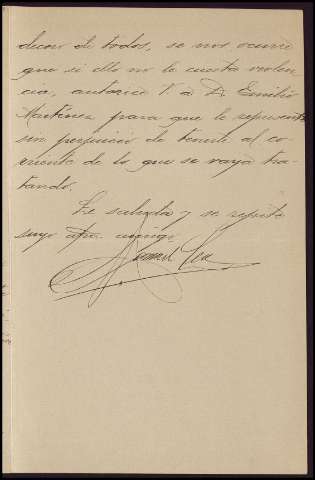 decoro de todos, se nos ocurre
que si ello no le cuesta violen-
cia, autorice V. a D. Emilio
Martínez para que le represente
sin perjuicio de tenerle al co-
rriente de lo que se vaya tra-
tando.
Le saluda y se repite
suyo afmo. amigo